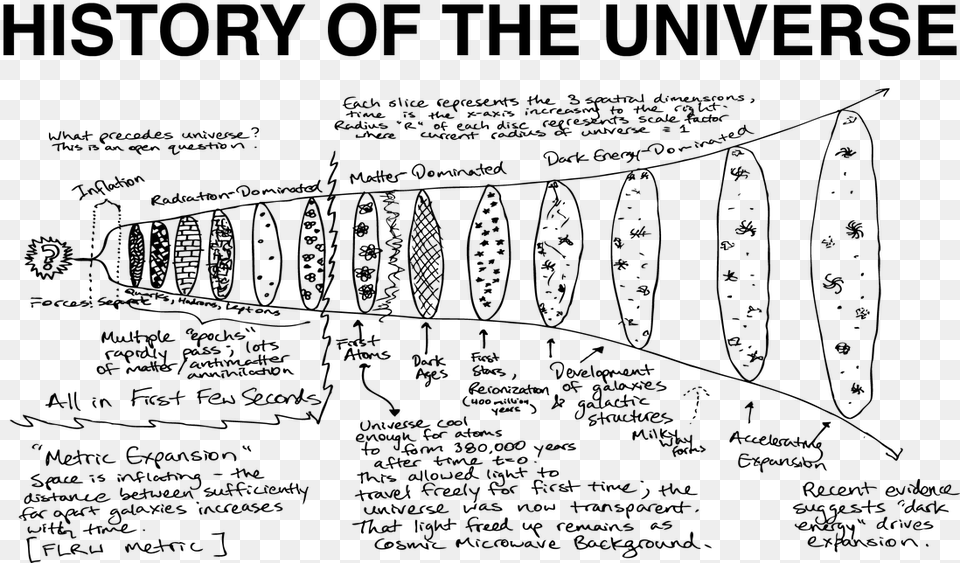 HISTORY OF THE UNIVERSE
Each slice represents the 3 spatial dimensions,
time is the x-axis increasing to the right.
Radius "R" of each disc represents scale factor
where current radius of universe = 1
What precedes universe?
This is an open question.
Inflation
Radiation-Dominated
Matter-Dominated
Dark Energy-Dominated
Forces Separate
Quarks, Hadrons, Leptons
Multiple "epochs"
rapidly pass; lots
of matter/antimatter
annihilation
All in First Few Seconds
First
Atoms
Dark
Ages
First
Stars,
Reionization
(400 million
years)
Development
of galaxies
& galactic
structures
Milky
Way
forms
Accelerating
Expansion
"Metric Expansion"
Space is inflating - the
distance between sufficiently
far apart galaxies increases
with time.
[FLRW Metric]
Universe cool
enough for atoms
to form 380,000 years
after time t=0.
This allowed light to
travel freely for first time; the
universe was now transparent.
That light freed up remains as
Cosmic Microwave Background.
Recent evidence
suggests "dark
energy" drives
expansion.